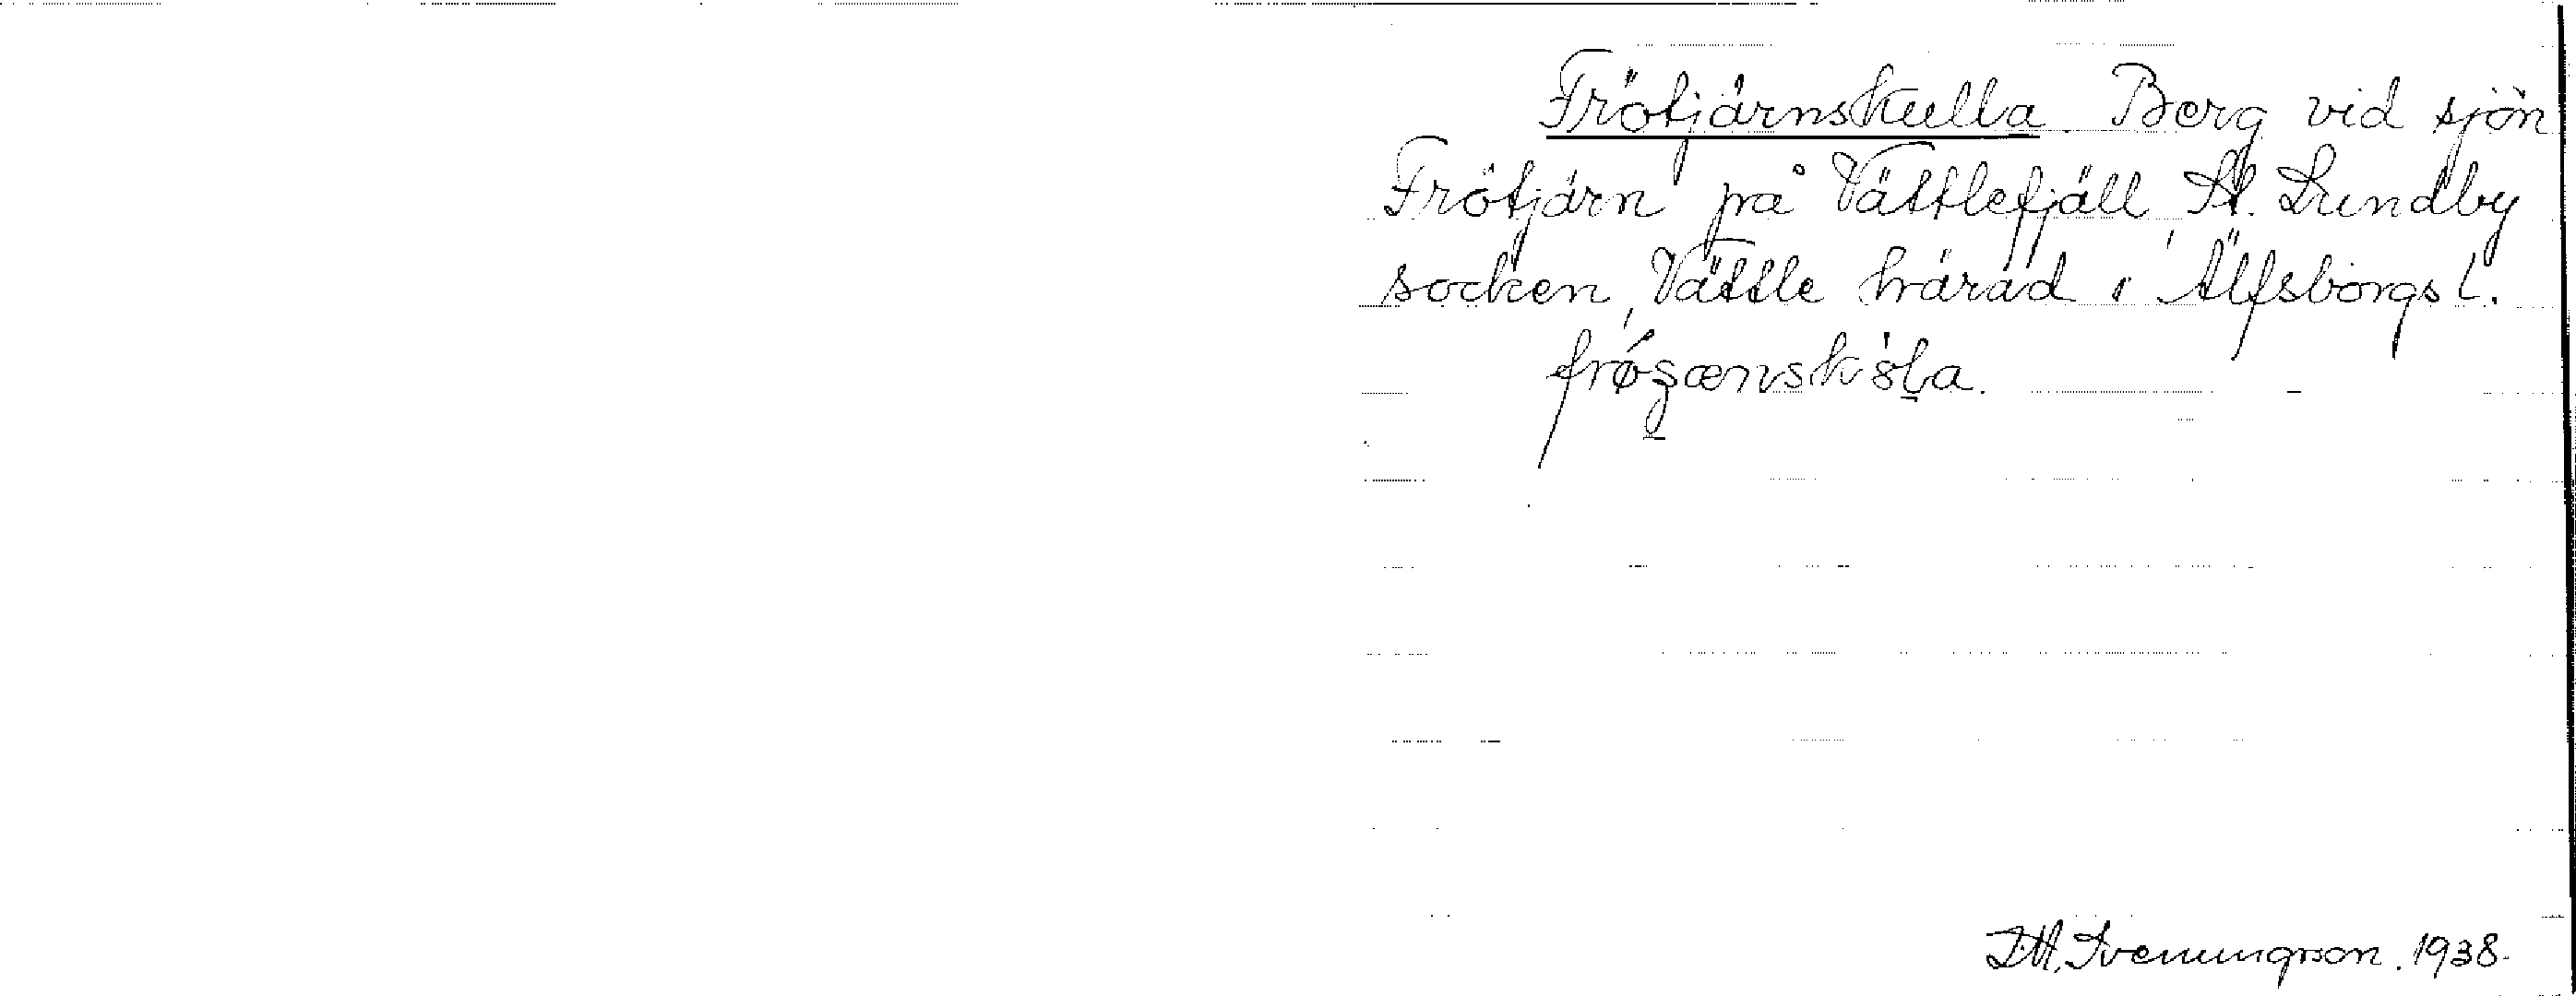 Frötjärnskulla. Berg vid sjön
Frötjärn på Vättlefjäll, St. Lundby
socken, Vättle härad i Älfsborgs l.
J.M. Svenningson. 1938.